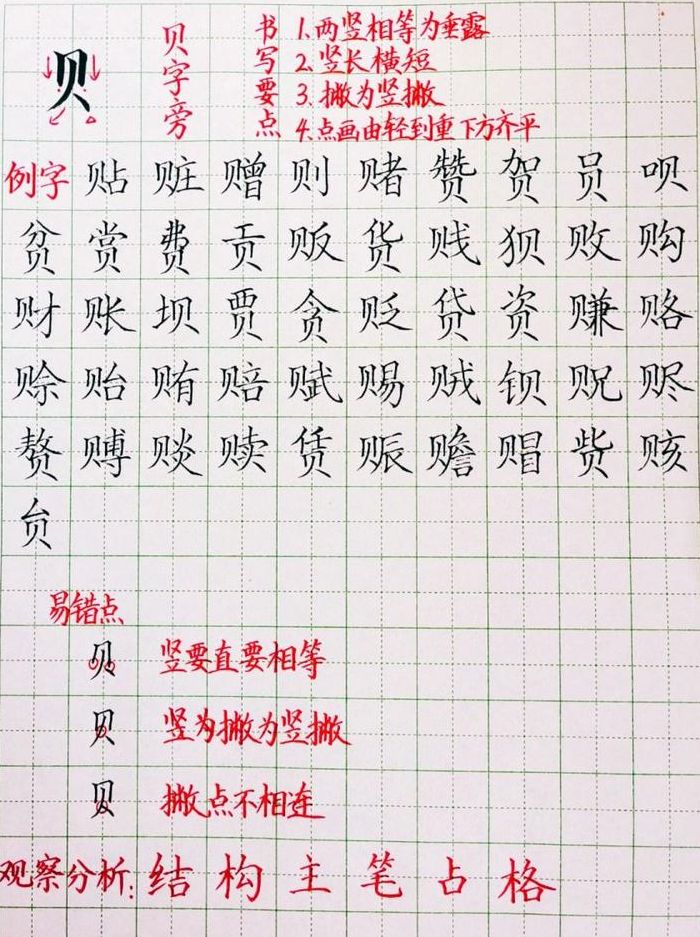 贝
贝字旁
书写要点
1.两竖相等为垂露
2.竖长横短
3.撇为竖撇
4.点画由轻到重下方齐平
例字 贴 赃 赠 则 赌 赞 贺 员 呗
贫 赏 费 贡 贩 货 贱 狈 败 购
财 账 坝 贾 贪 贬 贷 资 赚 赂
赊 贻 贿 赔 赋 赐 贼 钡 贶 赆
赘 赙 赕 赎 赁 赈 赡 赗 赀 赅
贠
易错点
贝 竖要直要相等
贝 竖为撇为竖撇
贝 撇点不相连
观察分析:结构主笔占格